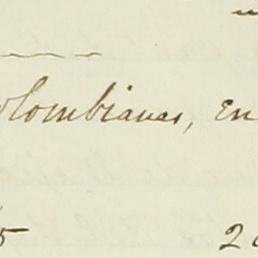 olombianas, en
5 2